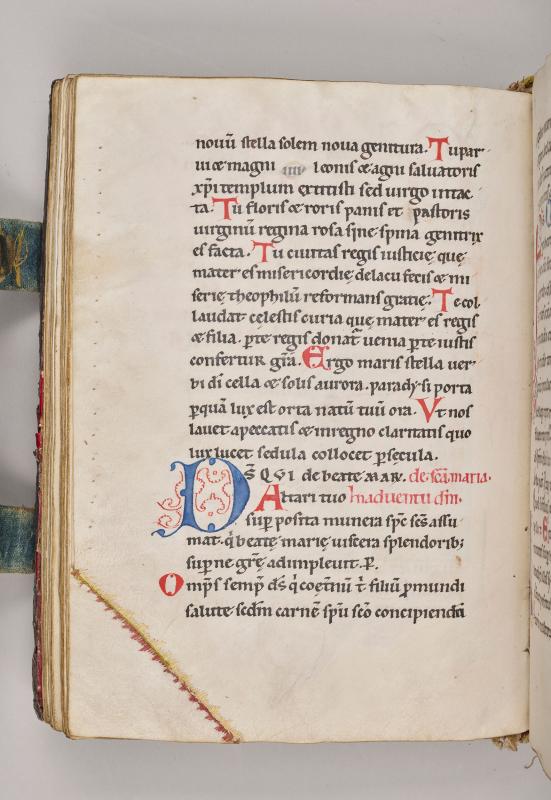 nouũ stella solem noua genitura. Tu par
ui & magni leonis & agni saluatoris
xpi templum extitisti sed uirgo intac
ta. Tu floris & roris panis et pastoris
uirginũ regina rosa sine spina genitrix
es facta. Tu ciuitas regis iusticię que
mater es misericordię de lacu fecis & mi
serię theophilũ reformans gratię. Te col
laudat cęlestis curia quę mater es regis
& filia. p̱ te regis donat̃ uenia p̱ te iustis
confertur gr̃a. Ergo maris stella uer
bi dĩ cella & solis aurora. paradysi porta
p̱ quã lux est orta natũ tuũ ora. Vt nos
lauet a peccatis & in regno claritatis quo
lux lucet sedula collocet p̱ secula.
D̃S QVI de beate MAR. de sc̃a maria
Altari tuo In aduentu dñi.
sup̱ posita munera sp̃c sc̃s assu
mat. q̇ beatę marię uiscera splendorib;
sup̱nę grẽ adimpleuit. P̱.
Omp̃s semp̱ ds̃ q̇ coet̃nũ t̃ filiũ p̱ mundi
salute scd̃m carnẽ sp̃u sc̃o concipiendũ